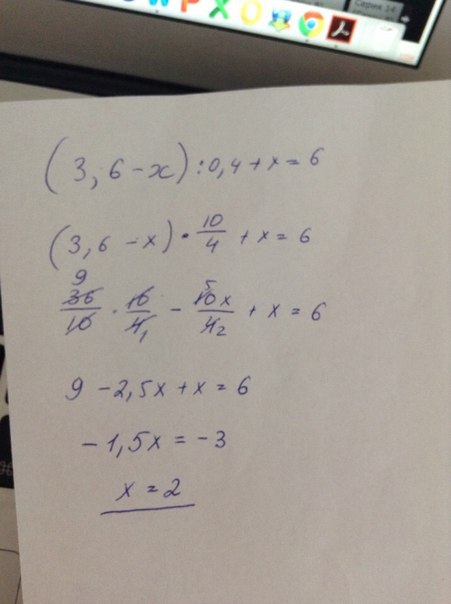 Серия 14
(3,6-x):0,4+x=6
(3,6-x)·10/4+x=6
9
36/10·10/4 1 - 5 10x/4 2+x=6
9-2,5x+x=6
-1,5x=-3
x=2